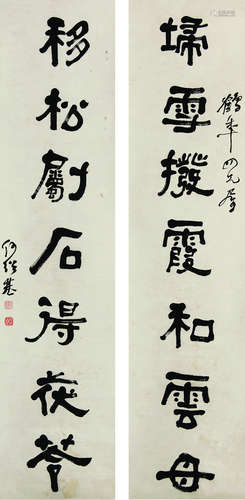 鶴年四兄屬
埽雪撥霞和雲母
移松劚石得茯苓
何紹基